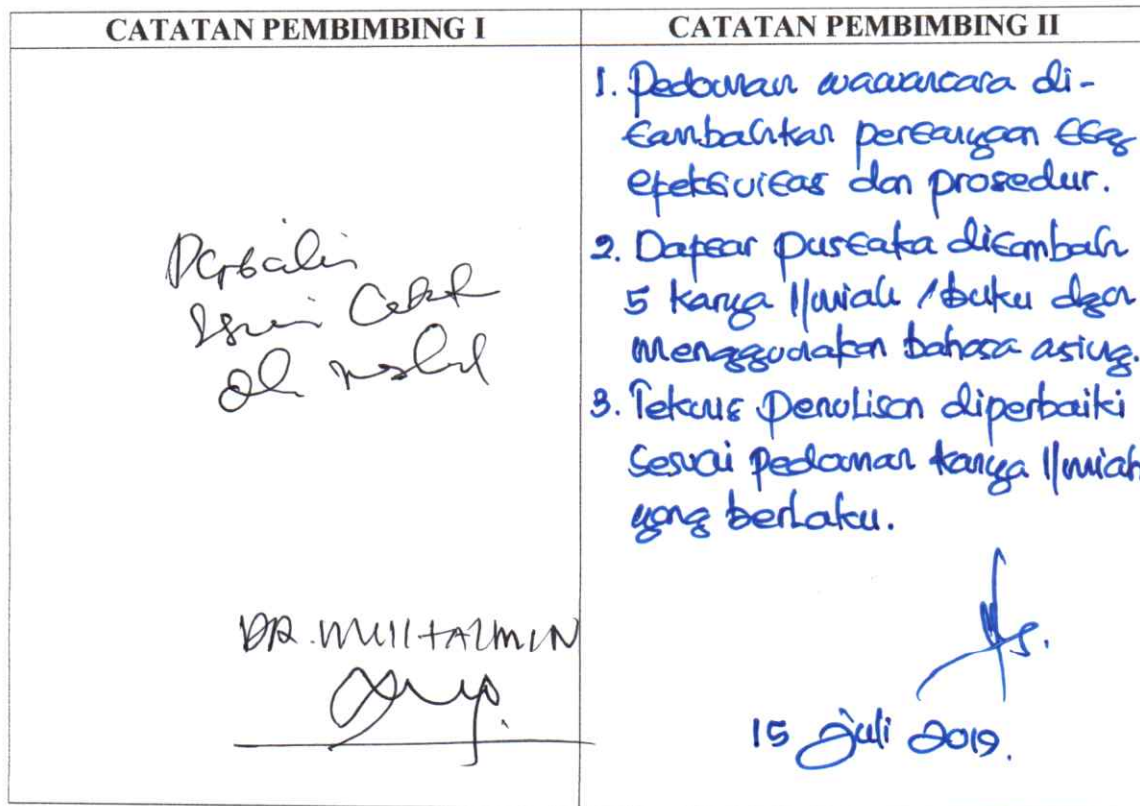 CATATAN PEMBIMBING I
Perbaiki
DR. MUHTAZMIN
CATATAN PEMBIMBING II
1. Pedoman wawancara di-
tambahkan pertanyaan ttg
efektivitas dan prosedur.
2. Daftar pustaka ditambah
5 karya Ilmiah / buku dgn
menggunakan bahasa asing.
3. Teknis penulisan diperbaiki
sesuai pedoman karya Ilmiah
yang berlaku.
15 Juli 2019.